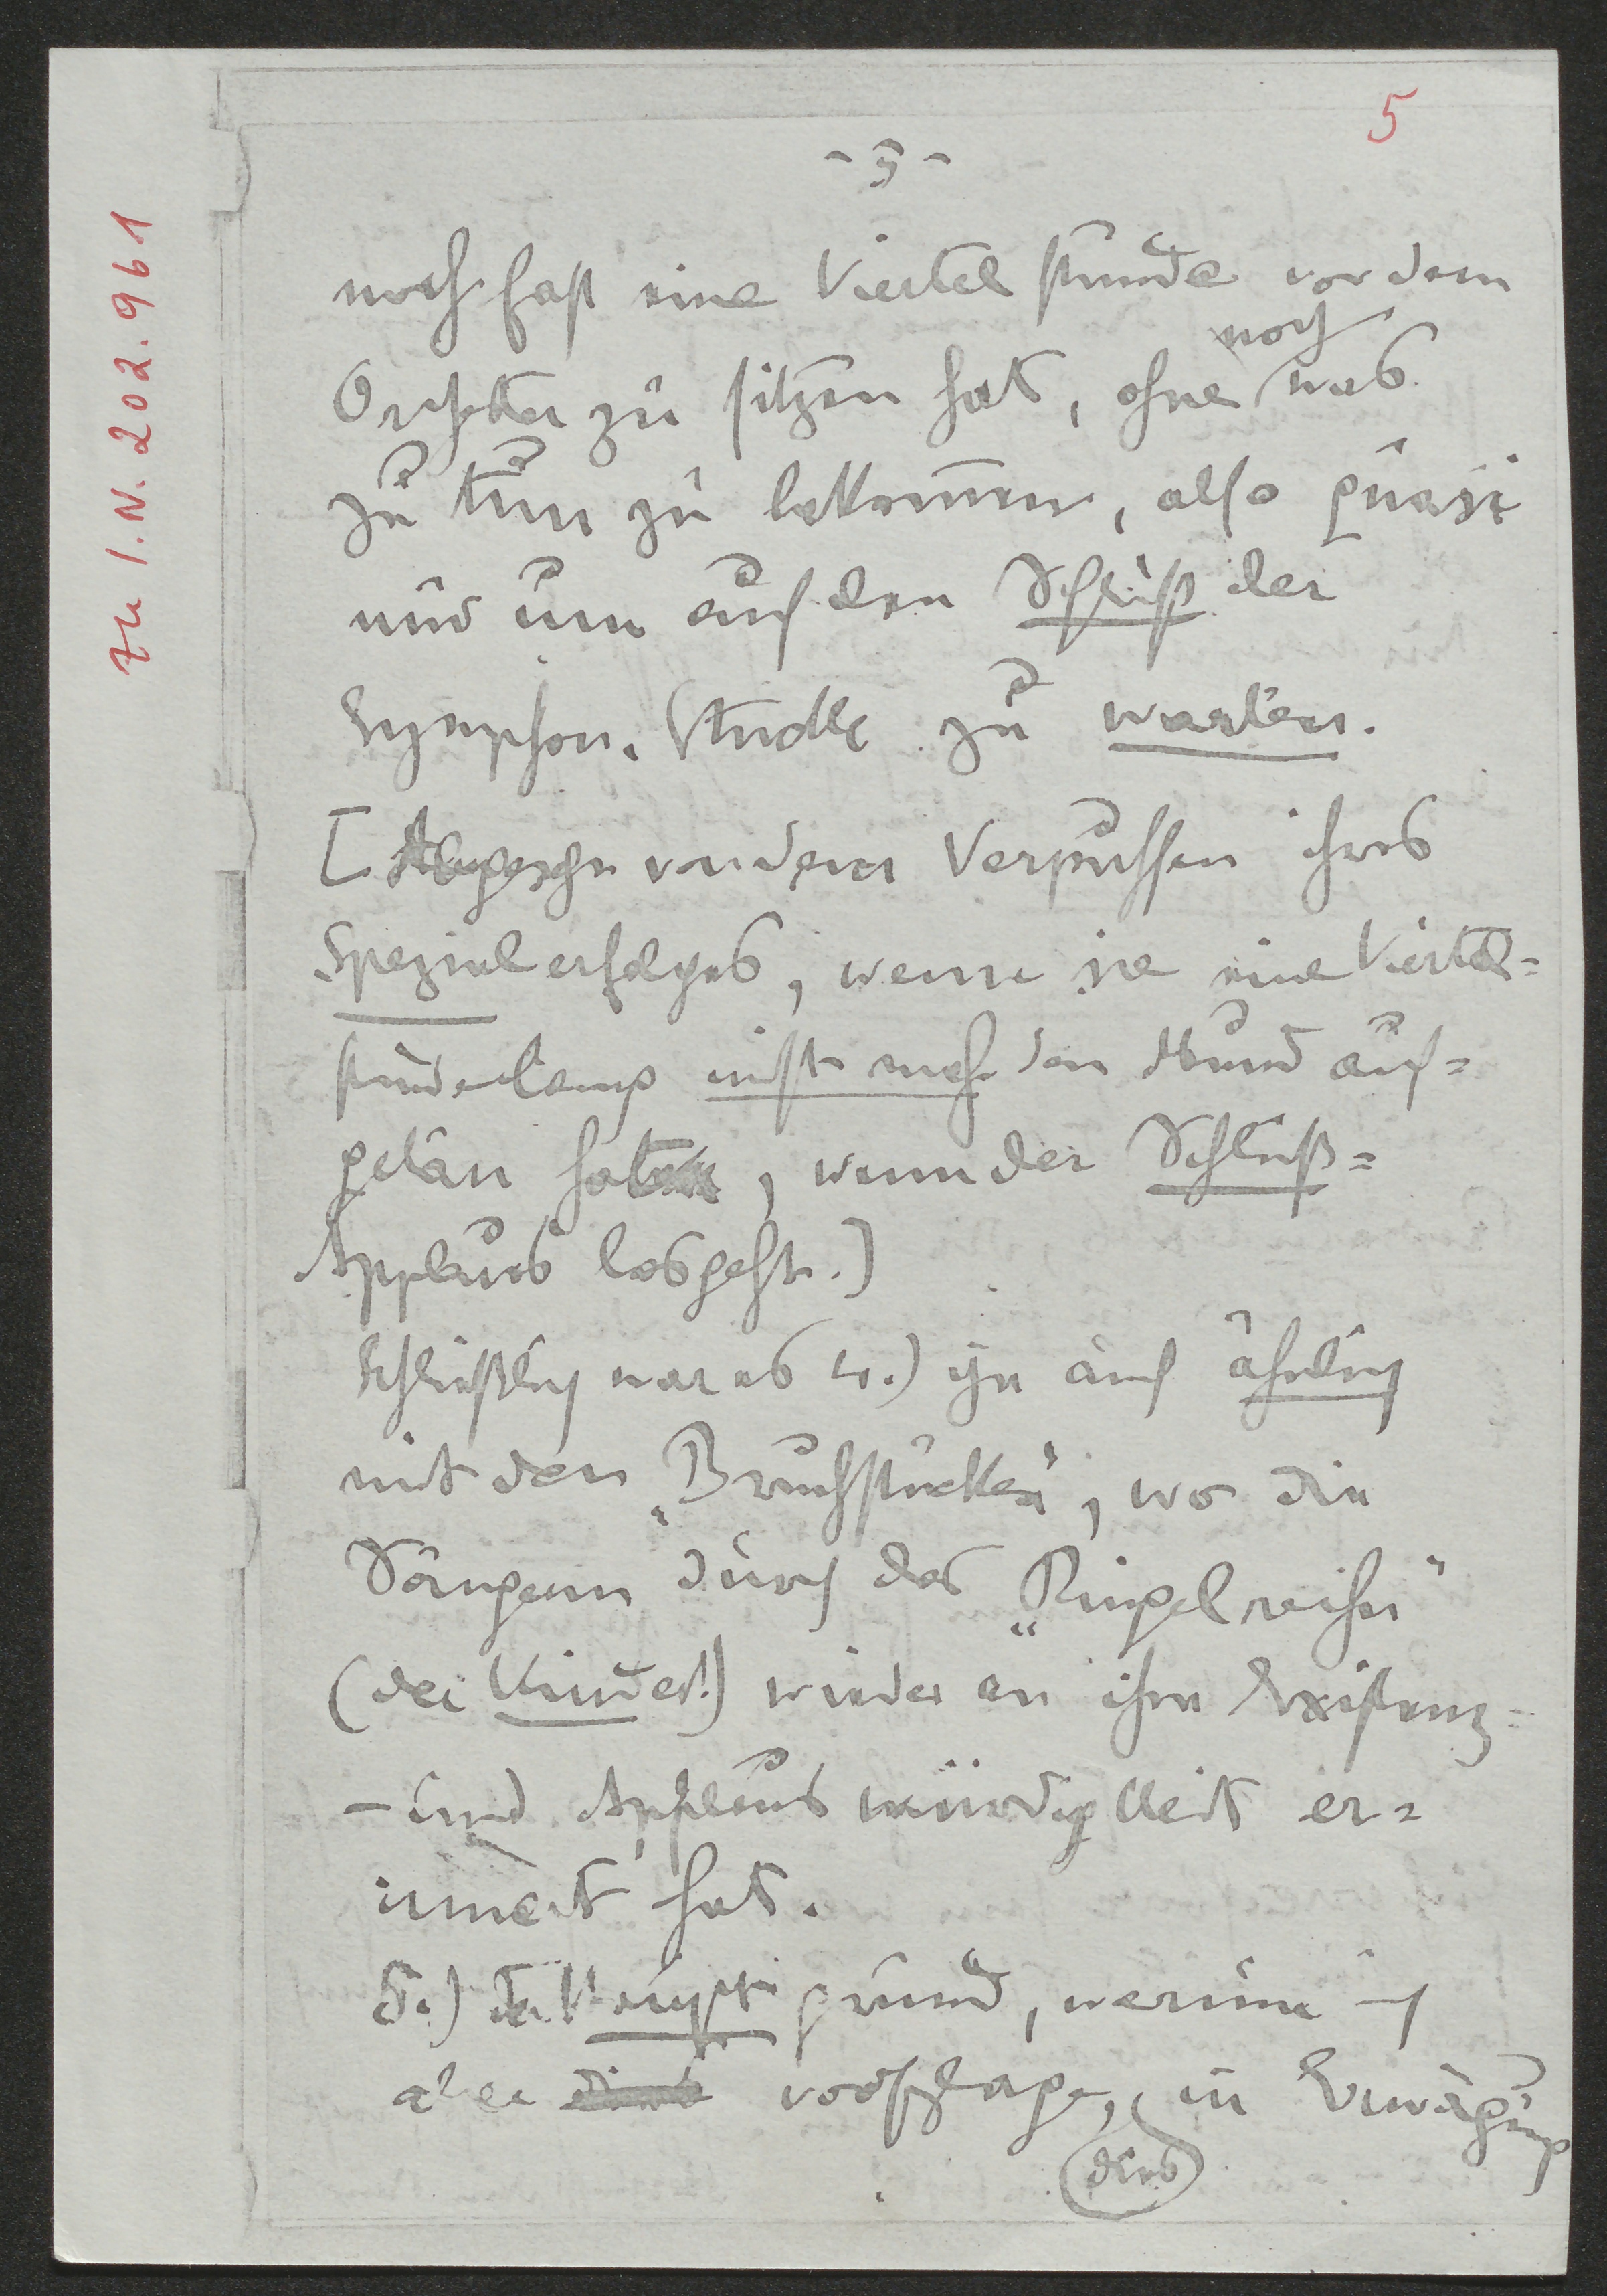 5
- 5 -
zu I.N. 202.961
noch fast eine Viertelstunde vor dem
noch
Orchester zu sitzen hat, ohne was
zu tun zu bekommen, also quasi
nur um auf den Schluß der
Symphon. Stücke zu warten.
[Abgesehn von dem Verpuffen ihres
Spezialerfolges, wenn sie eine Viertel=
stunde lang nicht mehr den Mund auf=
getan hat, wenn der Schluß=
Applaus losgeht.]
Schließlich war es ja auch ähnlich
mit den „Bruchstücken“, wo die
Sängerin durch das „Ringelreihn“
(der Kinder!) wieder an ihre Existenz=
- und Applauswürdigkeit er=
innert hat.
5.) der Hauptgrund, warum ich
aber vorschlage, in Erwägung
dies